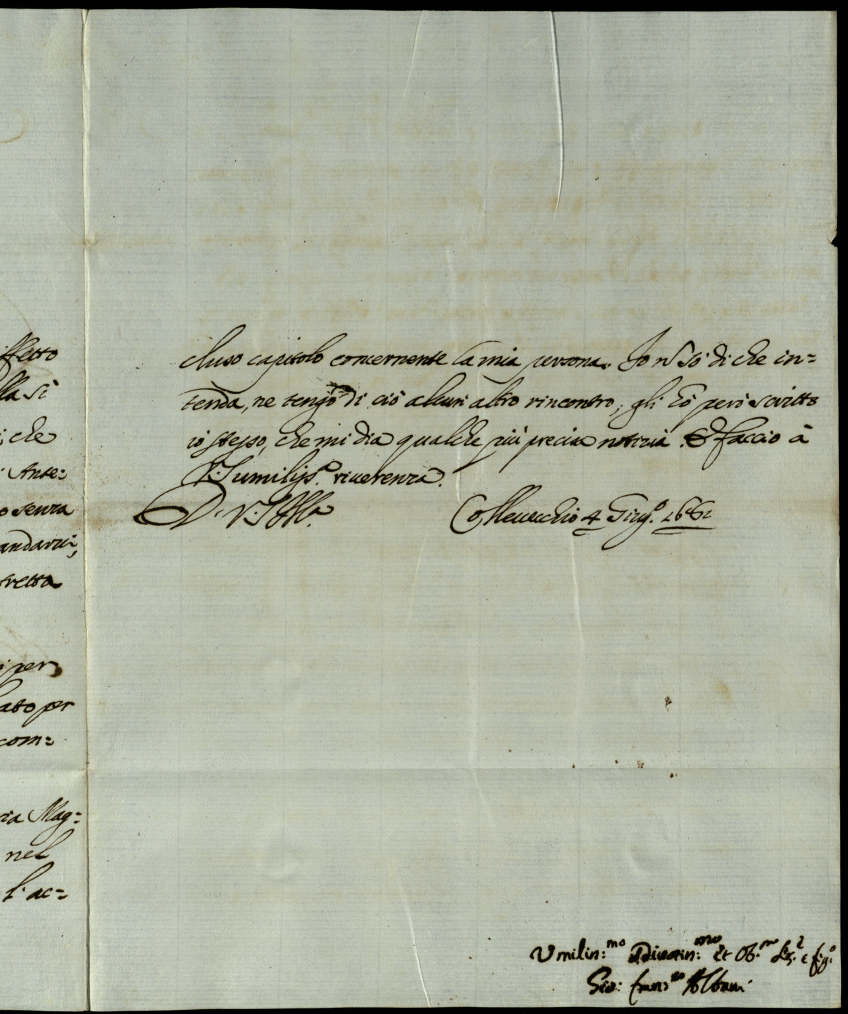 ffetto
lla si
che
Ante:
o senza
andarui,
fretta
per
ato per
com=
ria Mag=
nel
l'ac=
cluso capitolo concernente la mia persona. Io nō sò di che in=
tenda, ne tengo di ciò alcun altro rincontro, gli hò però scritto
io stesso, che mi dia qualche più precisa notizia. E faccio à
V.S. umiliss.ª riuerenza.
D. V.S. Ill.ma Colleuecchio 4 Giug.º 1661
Umilin:mo Diuotin:mo et Ob.mo se.r e fig.º
Gio: Fran.co Albani